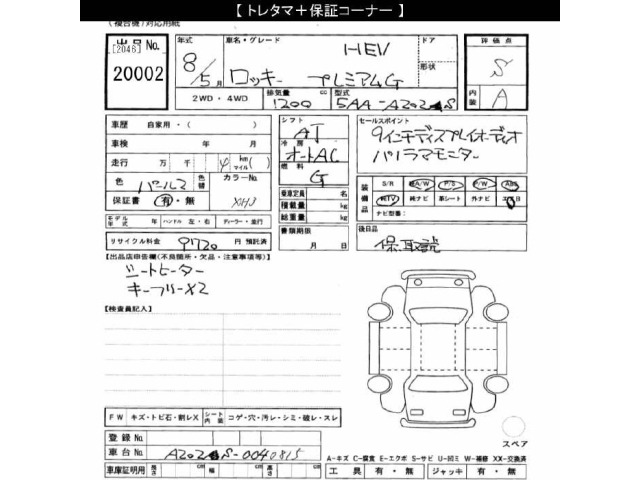 【 トレタマ＋保証コーナー 】
(複合機)対応用紙
出品No.
[2046]
20002
年式
8/5月
車名・グレード
HEV
ロッキー プレミアムG
ドア
形状
2WD・4WD
排気量 cc
1200
型式
5AA-A202S
評価点
S
内装
A
車歴 自家用・( )
車検 年 月
走行 万 千 4 km(マイル)
色 パール2 色替
カラーNo. XHJ
保証書 有・無
モデル年式 年 ハンドル 左・右 ディーラー・並行
リサイクル料金 9,720 円 預託済
シフト AT
冷房 オートAC
燃料 G
乗車定員 名
積載量 kg
総重量 kg
書類期限 月 日
セールスポイント
9インチディスプレイオーディオ
パノラマモニター
装備品
S/R 純A/W P/S P/W ABS
純TV 純ナビ 革シート 外ナビ
ナビ型番:
後日品
保、取説
【出品店申告欄(不良箇所・欠品・注意事項等)】
シートヒーター
キーフリー×2
【検査員記入】
FW キズ・トビ石・割レX シート内装 コゲ・穴・汚レ・シミ・破レ・スレ
登録No.
車台No. A202S-0040815
車庫証明用 長さ cm 幅 cm 高さ cm
スペア
A-キズ C-腐食 E-エクボ S-サビ U-凹ミ W-補修 XX-交換済
工具 有・無 ジャッキ 有・無